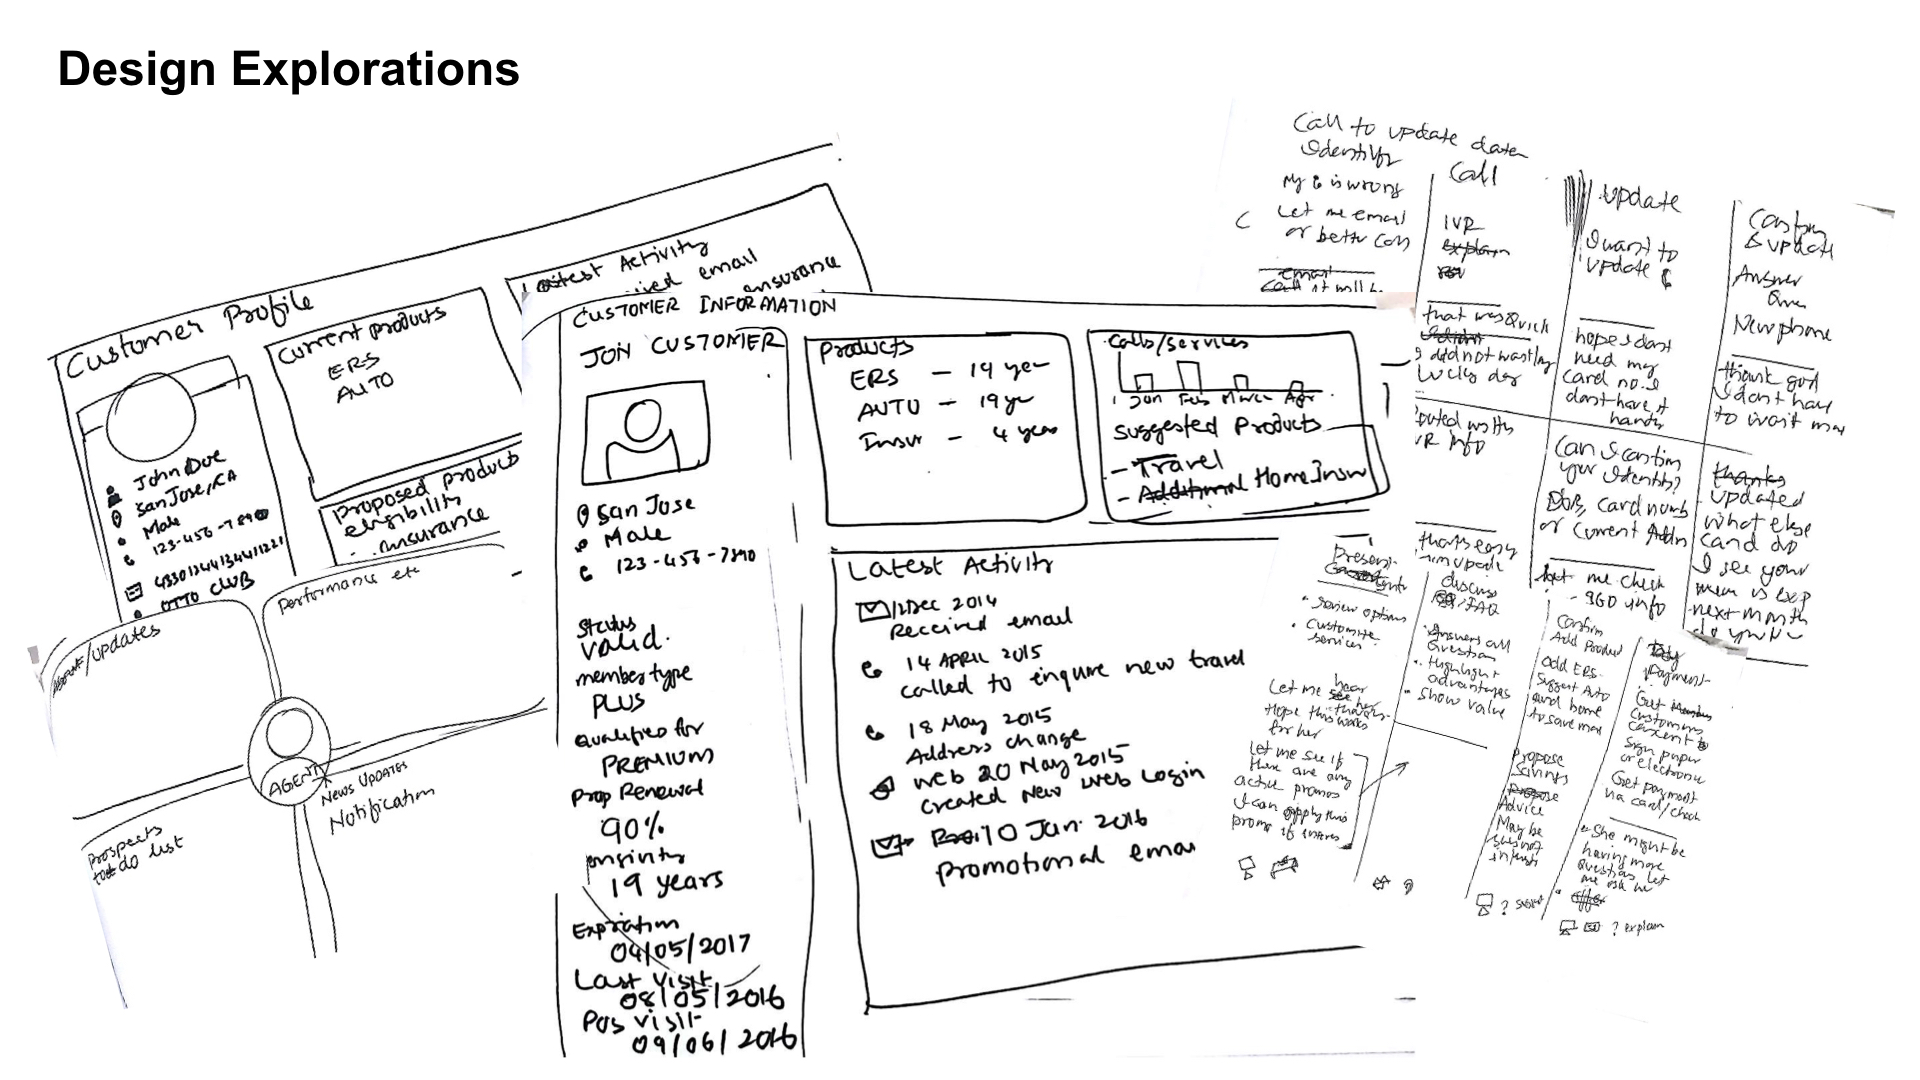 Design Explorations
Customer Profile
John Doe
San Jose, CA
Male
123-456-7890
OTTO CLUB
Current products
ERS
AUTO
Proposed product
eligibility
insurance
Latest Activity
email
insurance
/updates
Performance etc
AGENT
News Updates
Notification
Prospects
to do list
CUSTOMER INFORMATION
JON CUSTOMER
San Jose
Male
123-456-7890
Status
valid.
member type
PLUS
Qualified for
PREMIUM
Prop Renewal
90%
19 years
Expiration
04/05/2017
Last Visit
08/05/2016
Pos visit
09/06/2016
Products
ERS — 19 year
AUTO — 19 yr
Insur — 4 years
Calls/services
Jan Feb March Apr
Suggested Products
- Travel
- Additional Home Insur
Latest Activity
12 Dec 2014
Received email
14 APRIL 2015
called to enquire new travel
18 May 2015
Address change
Web 20 May 2015
Created New Web Login
10 Jan. 2016
Promotional emai
Call to update data
Identify
My is wrong
Let me email
or better call
email
Call
IVR
explain
that was quick
I did not wait long
Lucky day
Update
I want to
update
hope I dont
need my
card no. I
dont have it
handy
Confirm
& update
Answer
Ques
New phone
thank god
I dont have
to wait
Can I confirm
your identity?
DOB, card numb
or current Addr
let me check
- 360 info
thanks
updated
what else
can I do
I see your
mem is exp
next month
review options
customize
services
Let me see hear
her thoughts
Hope this works
for her
Let me see if
there are any
active promos
I can apply this
promo if
that's easy
discuss
FAQ
Answers all
Question
Highlight
advantages
show value
Confirm
Add Product
add ERS
Suggest Auto
and home
to save max
Propose
Savings
Propose
Advice
May be
she is not
Payment
Get
customers
consent to
sign paper
or electronic
Get payment
via card/check
She might be
having more
questions let
me ask her
offer
? explain